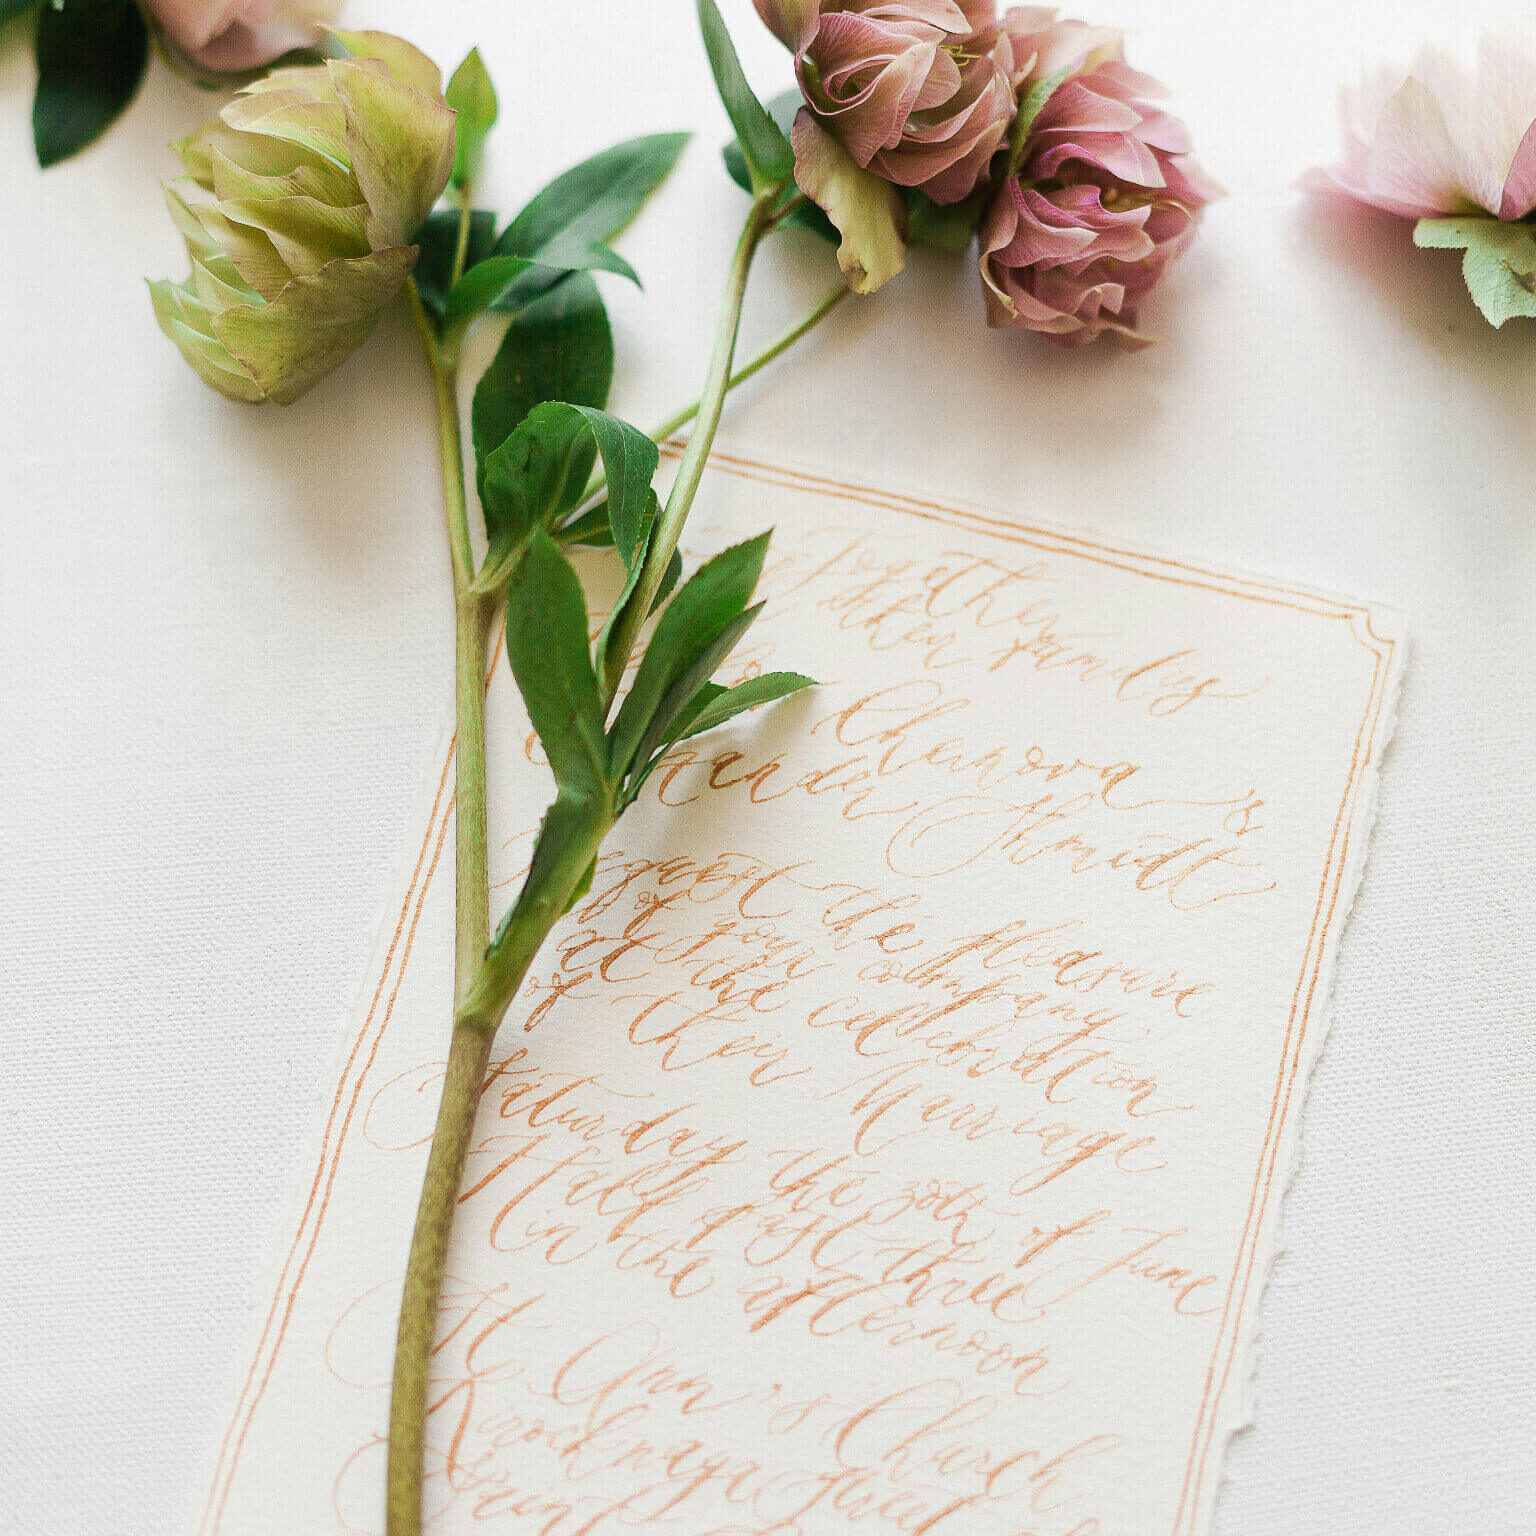 Together
ther families
Chernova &
ander Shmidt
Request the pleasure
of your company
at the cellebration
of their Marriage
Saturday the 30th of June
Half past three
in the afternoon
St Ann's Church
Kirochnaya street
Saint